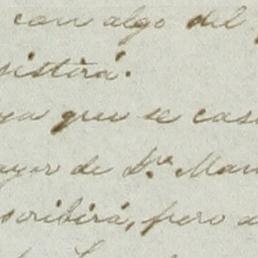 con algo del
sistirá.
ya que se cas
ayor de D.ª Man
scribirá, pero a